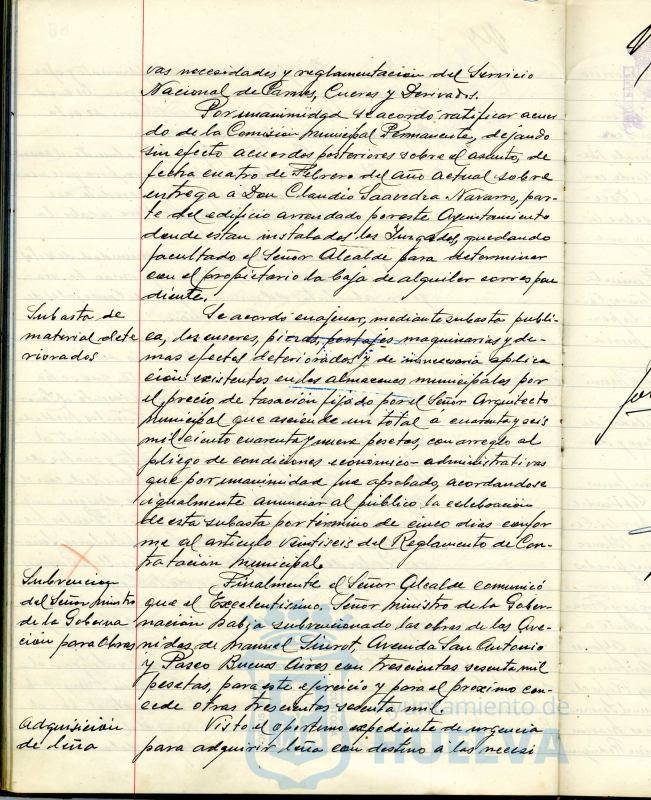 vas necesidades y reglamentación del Servicio
Nacional de Carnes, Cueros y Derivados.
Por unanimidad se acordó ratificar acuer
do de la Comisión Municipal Permanente, dejando
sin efecto acuerdos posteriores sobre el asunto, de
fecha cuatro de Febrero del año actual sobre
entrega á Don Claudio Saavedra Navarro, par-
te del edificio arrendado por este Ayuntamiento
donde estan instalados los Juzgados, quedando
facultado el Señor Alcalde para determinar
con el propietario la baja de alquiler correspon
diente.
Subasta de
material dete
riorados
Se acordó enajenar, mediante subasta públi-
ca, los enseres, maquinarias y de-
mas efectos deteriorados y de innecesaria aplica
ción existentes en los almacenes municipales por
el precio de tasación fijado por el Señor Arquitecto
Municipal que asciende un total á cuarenta y seis
mil seiscuento cuarenta y nueve pesetas, con arreglo al
pliego de condiciones económico-administrativas
que por unanimidad fue aprobado, acordandose
igualmente anunciar al público la celebración
de esta subasta por termino de cinco dias confor
me al articulo veintiseis del Reglamento de Con-
tratación Municipal.
Subvención
del Señor Ministro
de la Goberna
ción para Obras
Finalmente el Señor Alcalde comunicó
que el Excelentisimo, Señor Ministro de la Gober-
nación habia subvencionado las obras de las Ave-
nidas de Manuel Siurot, Avenida San Antonio
y Paseo Buenos Aires con trescientas sesenta mil
pesetas, para este ejercicio y para el proximo con-
cede otras trescientas sesenta mil.
Adquisición
de leña
Visto el oportuno expediente de urgencia
para adquirir leña con destino á las necesi
Ayuntamiento de
HUELVA